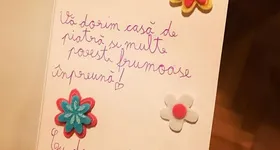 Vă dorim casă de
piatră și multe
povești frumoase
împreună!
Cu d